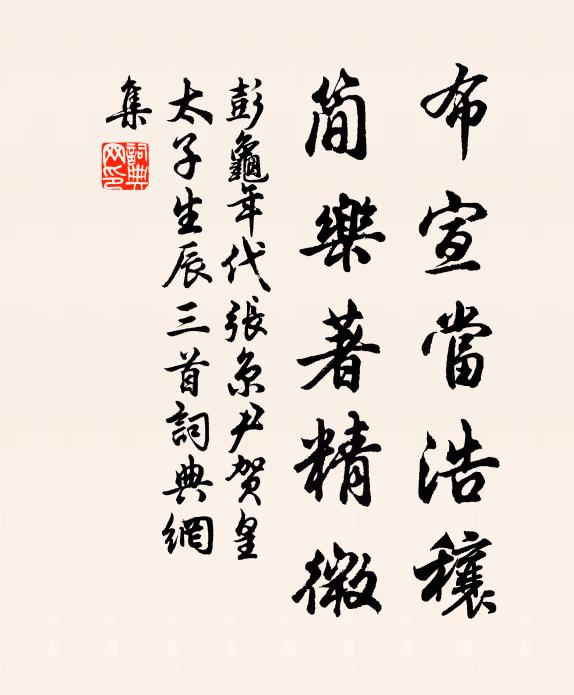 布宣當浩穰
簡樂著精微
彭龜年代張京尹賀皇
太子生辰三首詞典網
集
詞典
网印